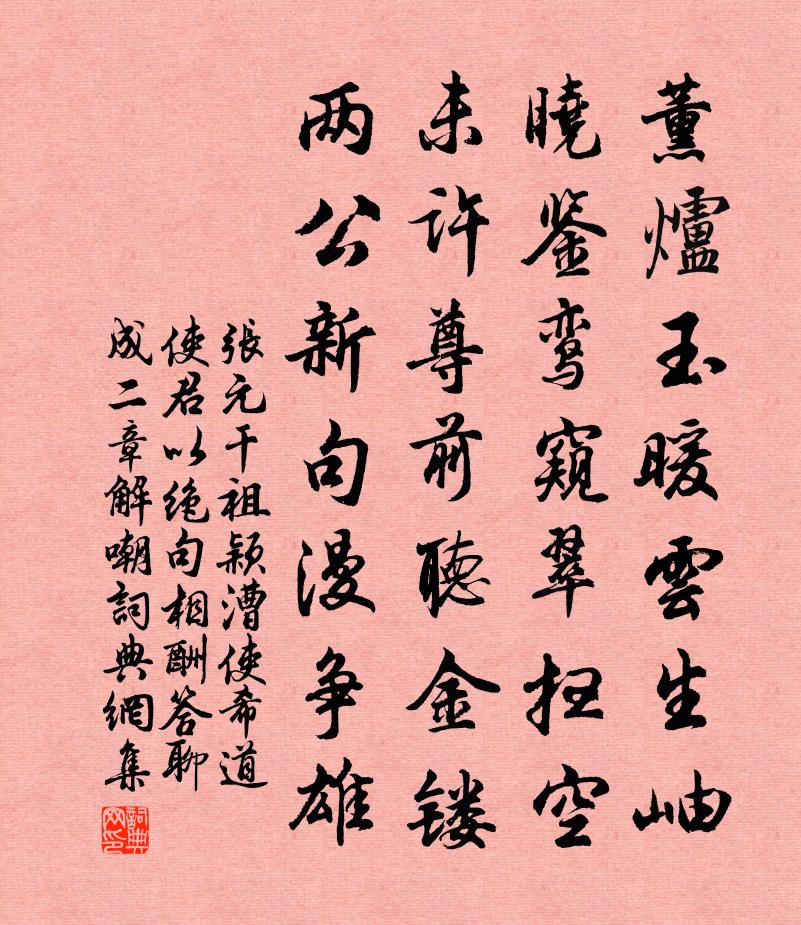 薰爐玉暖雲生岫
曉鉴鸾窺翠扫空
未许尊前聽金镂
两公新句漫争雄
張元干祖颖漕使希道
使君以绝句相酬答聊
成二章解嘲詞典網集
詞典网印